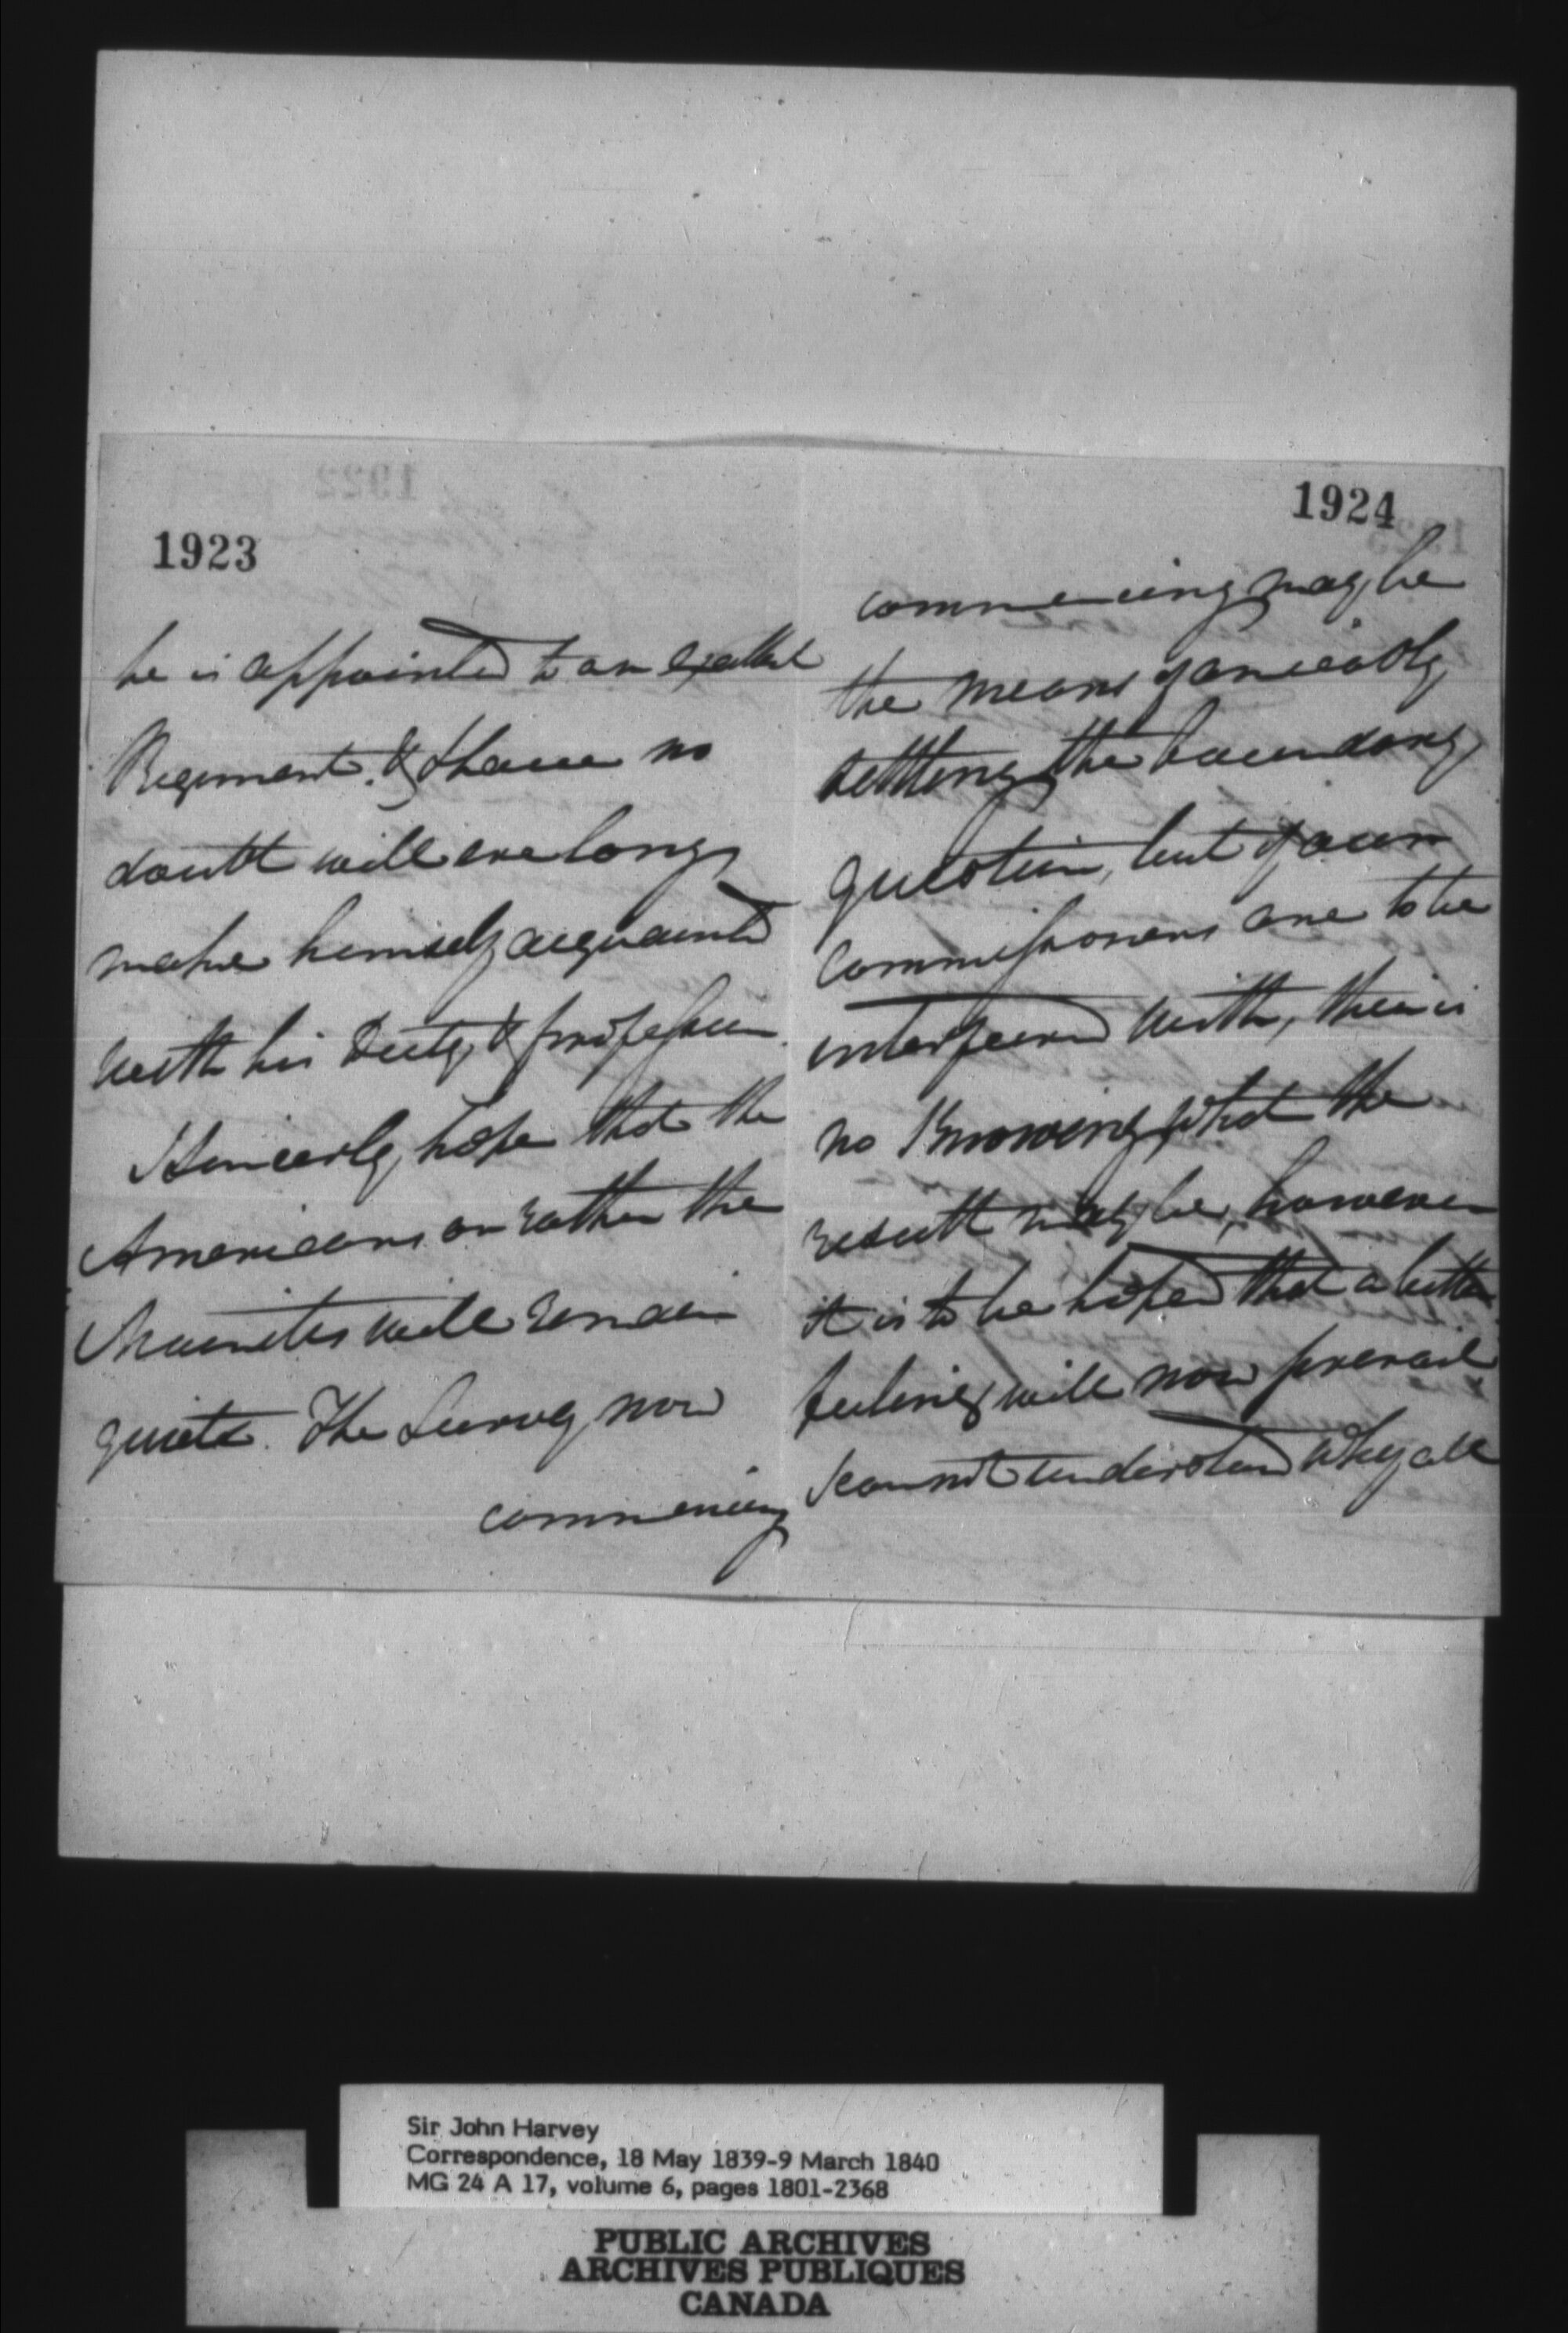 1923
he is appointed to an excellent
Regiment. & I have no
doubt will ere long
make himself acquainted
with his Duty & profession.
I sincerely hope that the
Americans or rather the
Maineites will remain
quiet. The Survey now
commencing
1924
commencing may be
the means of amicably
settling the boundary
question, but if our
Commissioners are to be
interfered with, there is
no Knowing what the
result may be, however
it is to be hoped that a better
feeling will now prevail
I cannot understand why all
Sir John Harvey
Correspondence, 18 May 1839-9 March 1840
MG 24 A 17, volume 6, pages 1801-2368
PUBLIC ARCHIVES
ARCHIVES PUBLIQUES
CANADA